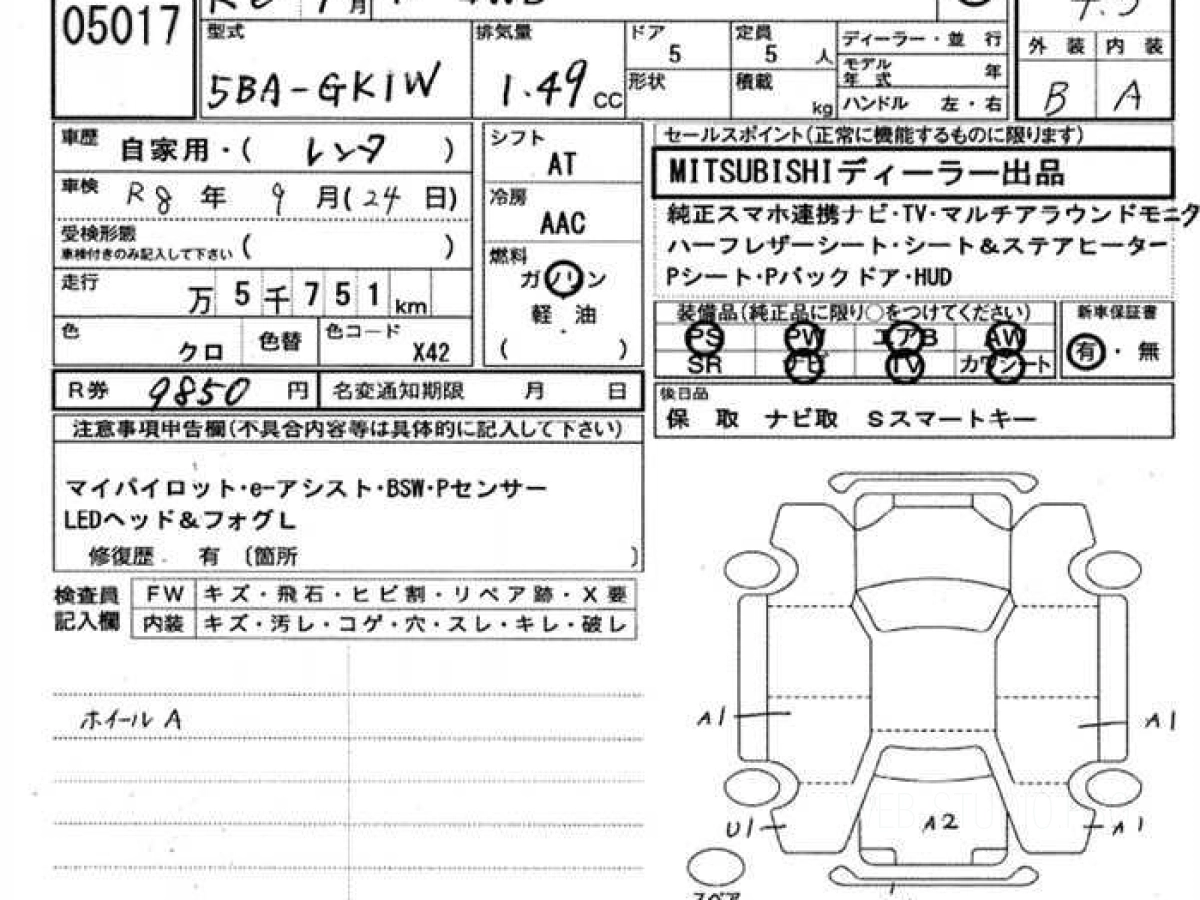 05017
月
型式
5BA-GK1W
排気量
1.49 cc
ドア
5
形状
定員
5 人
積載
kg
ディーラー・並 行
モデル年式 年
ハンドル 左・右
外 装 内 装
B A
車歴 自家用・( レンタ )
車検 R8 年 9 月(24 日)
受検形態
車検付きのみ記入して下さい ( )
走行 万 5 千 7 5 1 km
色 クロ 色替 色コード X42
シフト
AT
冷房
AAC
燃料
ガソリン
軽 油
( )
R券 9850 円 名変通知期限 月 日
セールスポイント(正常に機能するものに限ります)
MITSUBISHIディーラー出品
純正スマホ連携ナビ・TV・マルチアラウンドモニタ
ハーフレザーシート・シート&ステアヒーター
Pシート・Pバックドア・HUD
装備品(純正品に限り○をつけてください)
PS PW エアB AW
SR ナビ TV カワシート
新車保証書
有・無
後日品
保 取 ナビ取 Sスマートキー
注意事項申告欄(不具合内容等は具体的に記入して下さい)
マイパイロット・e-アシスト・BSW・Pセンサー
LEDヘッド&フォグL
修復歴. 有 〔箇所 〕
検査員記入欄
FW キズ・飛石・ヒビ割・リペア跡・X要
内装 キズ・汚レ・コゲ・穴・スレ・キレ・破レ
ホイール A
A1
A1
U1
A2
A1
スペア